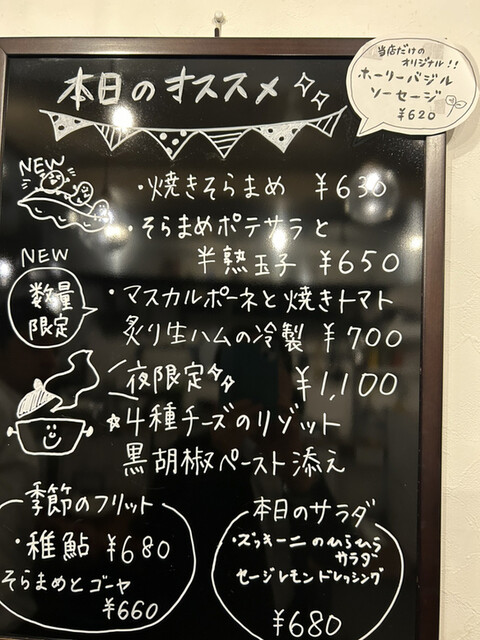 当店だけの
オリジナル!!
ホーリーバジル
ソーセージ
¥620
本日のオススメ
NEW
・焼きそらまめ ¥630
・そらまめポテサラと
半熟玉子 ¥650
NEW
数量
限定
・マスカルポーネと焼きトマト
炙り生ハムの冷製 ¥700
夜限定 ¥1,100
☆4種チーズのリゾット
黒胡椒ペースト添え
季節のフリット
・稚鮎 ¥680
そらまめとゴーヤ
¥660
本日のサラダ
・ズッキーニのひらひら
サラダ
セージレモンドレッシング
¥680